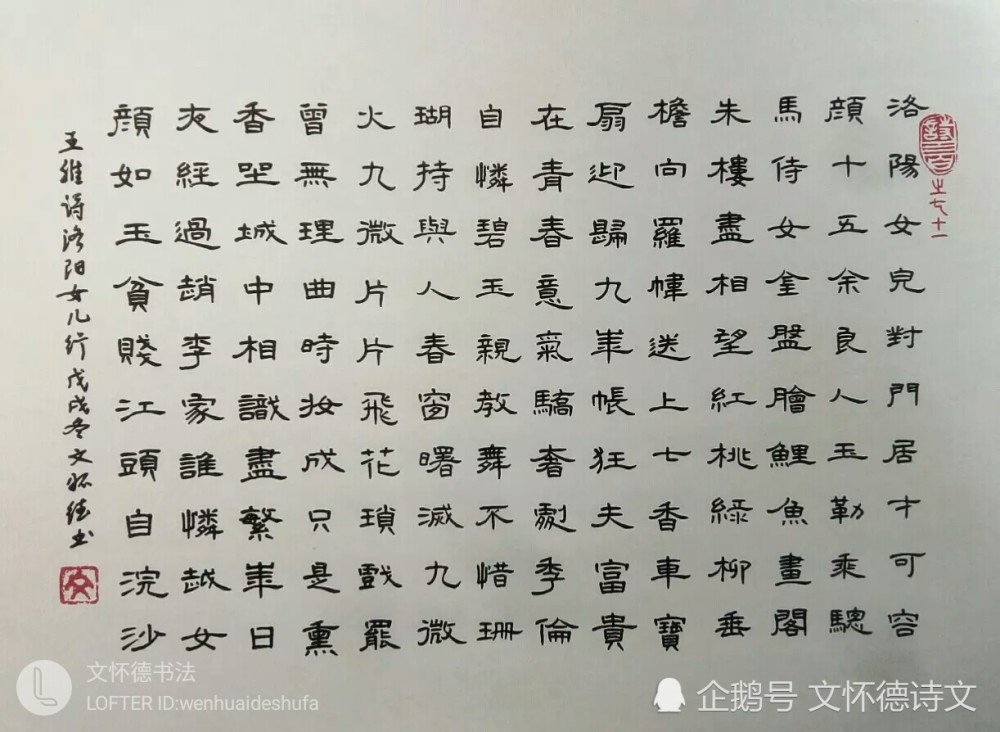 詩三百
之七十一
洛陽女兒對門居才可容
顔十五余良人玉勒乘驄
馬侍女金盤膾鯉魚畫閣
朱樓盡相望紅桃綠柳垂
檐向羅幃送上七香車寶
扇迎歸九華帳狂夫富貴
在青春意氣驕奢劇季倫
自憐碧玉親教舞不惜珊
瑚持與人春窗曙滅九微
火九微片片飛花瑣戲罷
曾無理曲時妝成只是熏
香坐城中相識盡繁華日
夜經過趙李家誰憐越女
顔如玉貧賤江頭自浣沙
王维诗洛阳女儿行戊戌冬文怀德书
文
文怀德书法
LOFTER ID:wenhuaideshufa
企鹅号 文怀德诗文